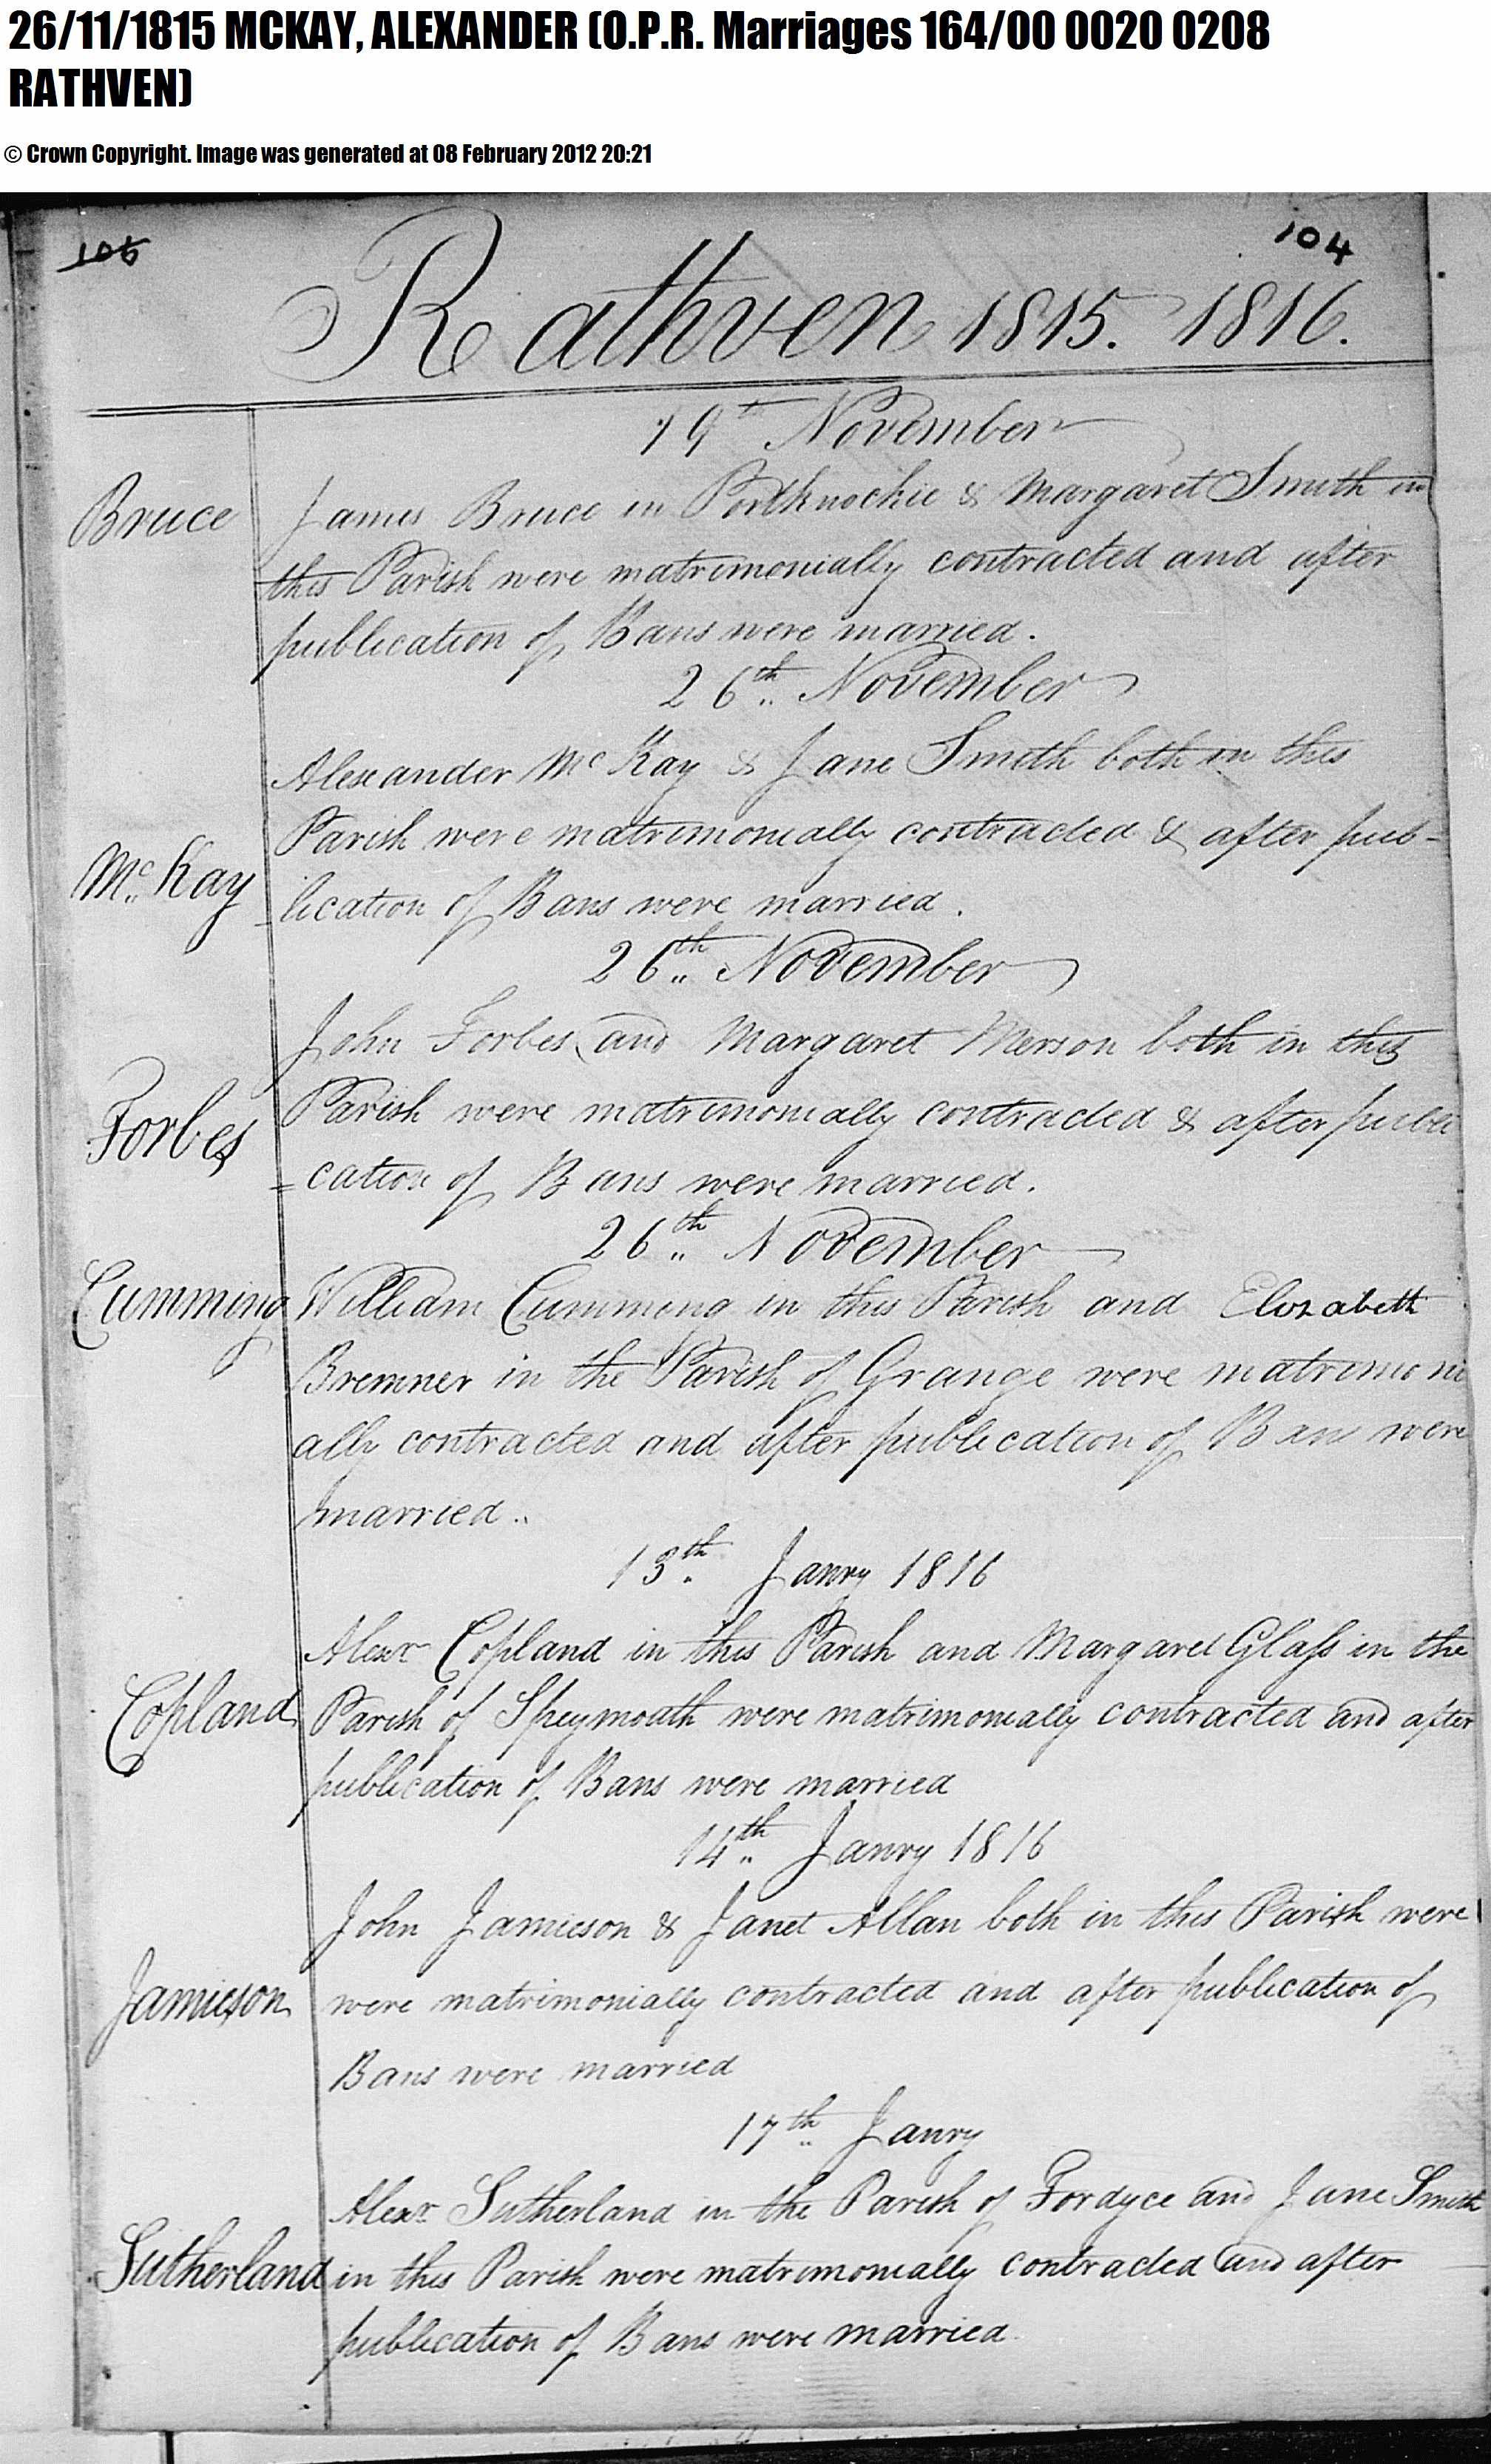 26/11/1815 MCKAY, ALEXANDER (O.P.R. Marriages 164/00 0020 0208
RATHVEN)
© Crown Copyright. Image was generated at 08 February 2012 20:21
105 104
Rathven 1815. 1816.
19th November
Bruce James Bruce in Portknockie & Margaret Smith in
this Parish were matrimonially contracted and after
publication of Bans were married.
26th November
Alexander McKay & Jane Smith both in this
Parish were matrimonially contracted & after pub-
McKay lication of Bans were married.
26th November
John Forbes and Margaret Merson both in this
Forbes Parish were matrimonially contracted & after publi
=cation of Bans were married.
26th November
Cumming William Cumming in this Parish and Elizabeth
Bremner in the Parish of Grange were matrimoni
ally contracted and after publication of Bans were
married..
13th Janry 1816
Alexr Copland in this Parish and Margaret Glass in the
Copland Parish of Speymoath were matrimonially contracted and after
publication of Bans were married
14th Janry 1816
John Jamieson & Janet Allan both in this Parish were
Jamieson were matrimonially contracted and after publication of
Bans were married
17th Janry
Alexr Sutherland in the Parish of Fordyce and Jane Smith
Sutherland in this Parish were matrimonially contracted and after
publication of Bans were married.